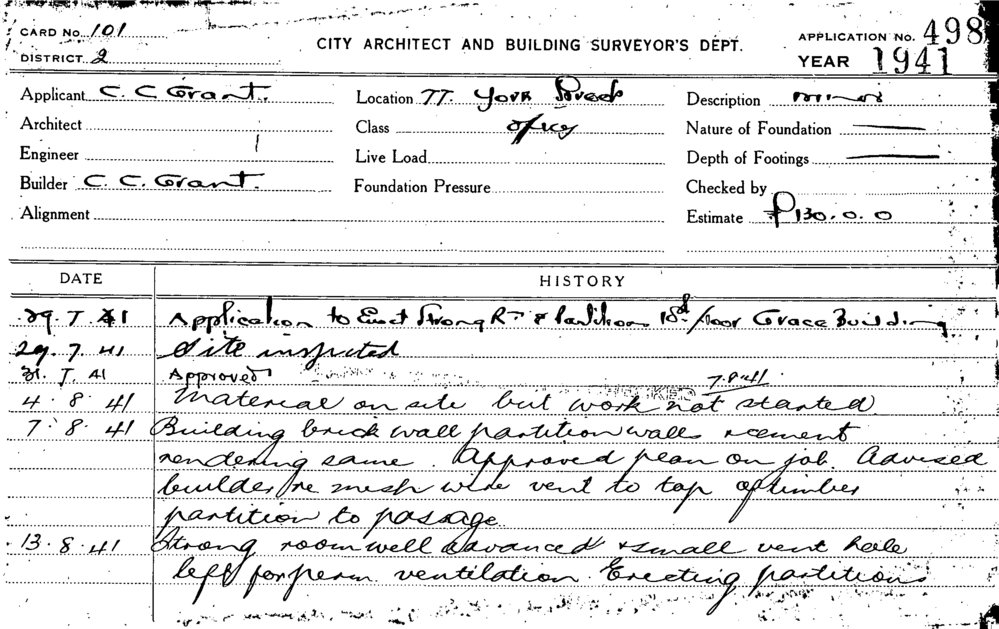 CARD No. 101
DISTRICT 2
CITY ARCHITECT AND BUILDING SURVEYOR'S DEPT.
APPLICATION No. 498
YEAR 1941
Applicant C. C. Grant.
Location 77. York Street
Description minor
Architect
Class office
Nature of Foundation —
Engineer
Live Load
Depth of Footings —
Builder C. C. Grant.
Foundation Pressure
Checked by
Alignment
Estimate £130.0.0
DATE
HISTORY
29.7.41 Application to Erect Strong Rm & Partitions floor Grace Building
29.7.41 Site inspected
31.7.41 Approved
7.8.41
4.8.41 Material on site but work not started
7.8.41 Building brick wall partition walls & cement
rendering same. Approved plan on job. Advised
builder re mesh wire vent to top of timber
partition to passage
13.8.41 Strong room well advanced & small vent hole
left for perm ventilation. Erecting partitions